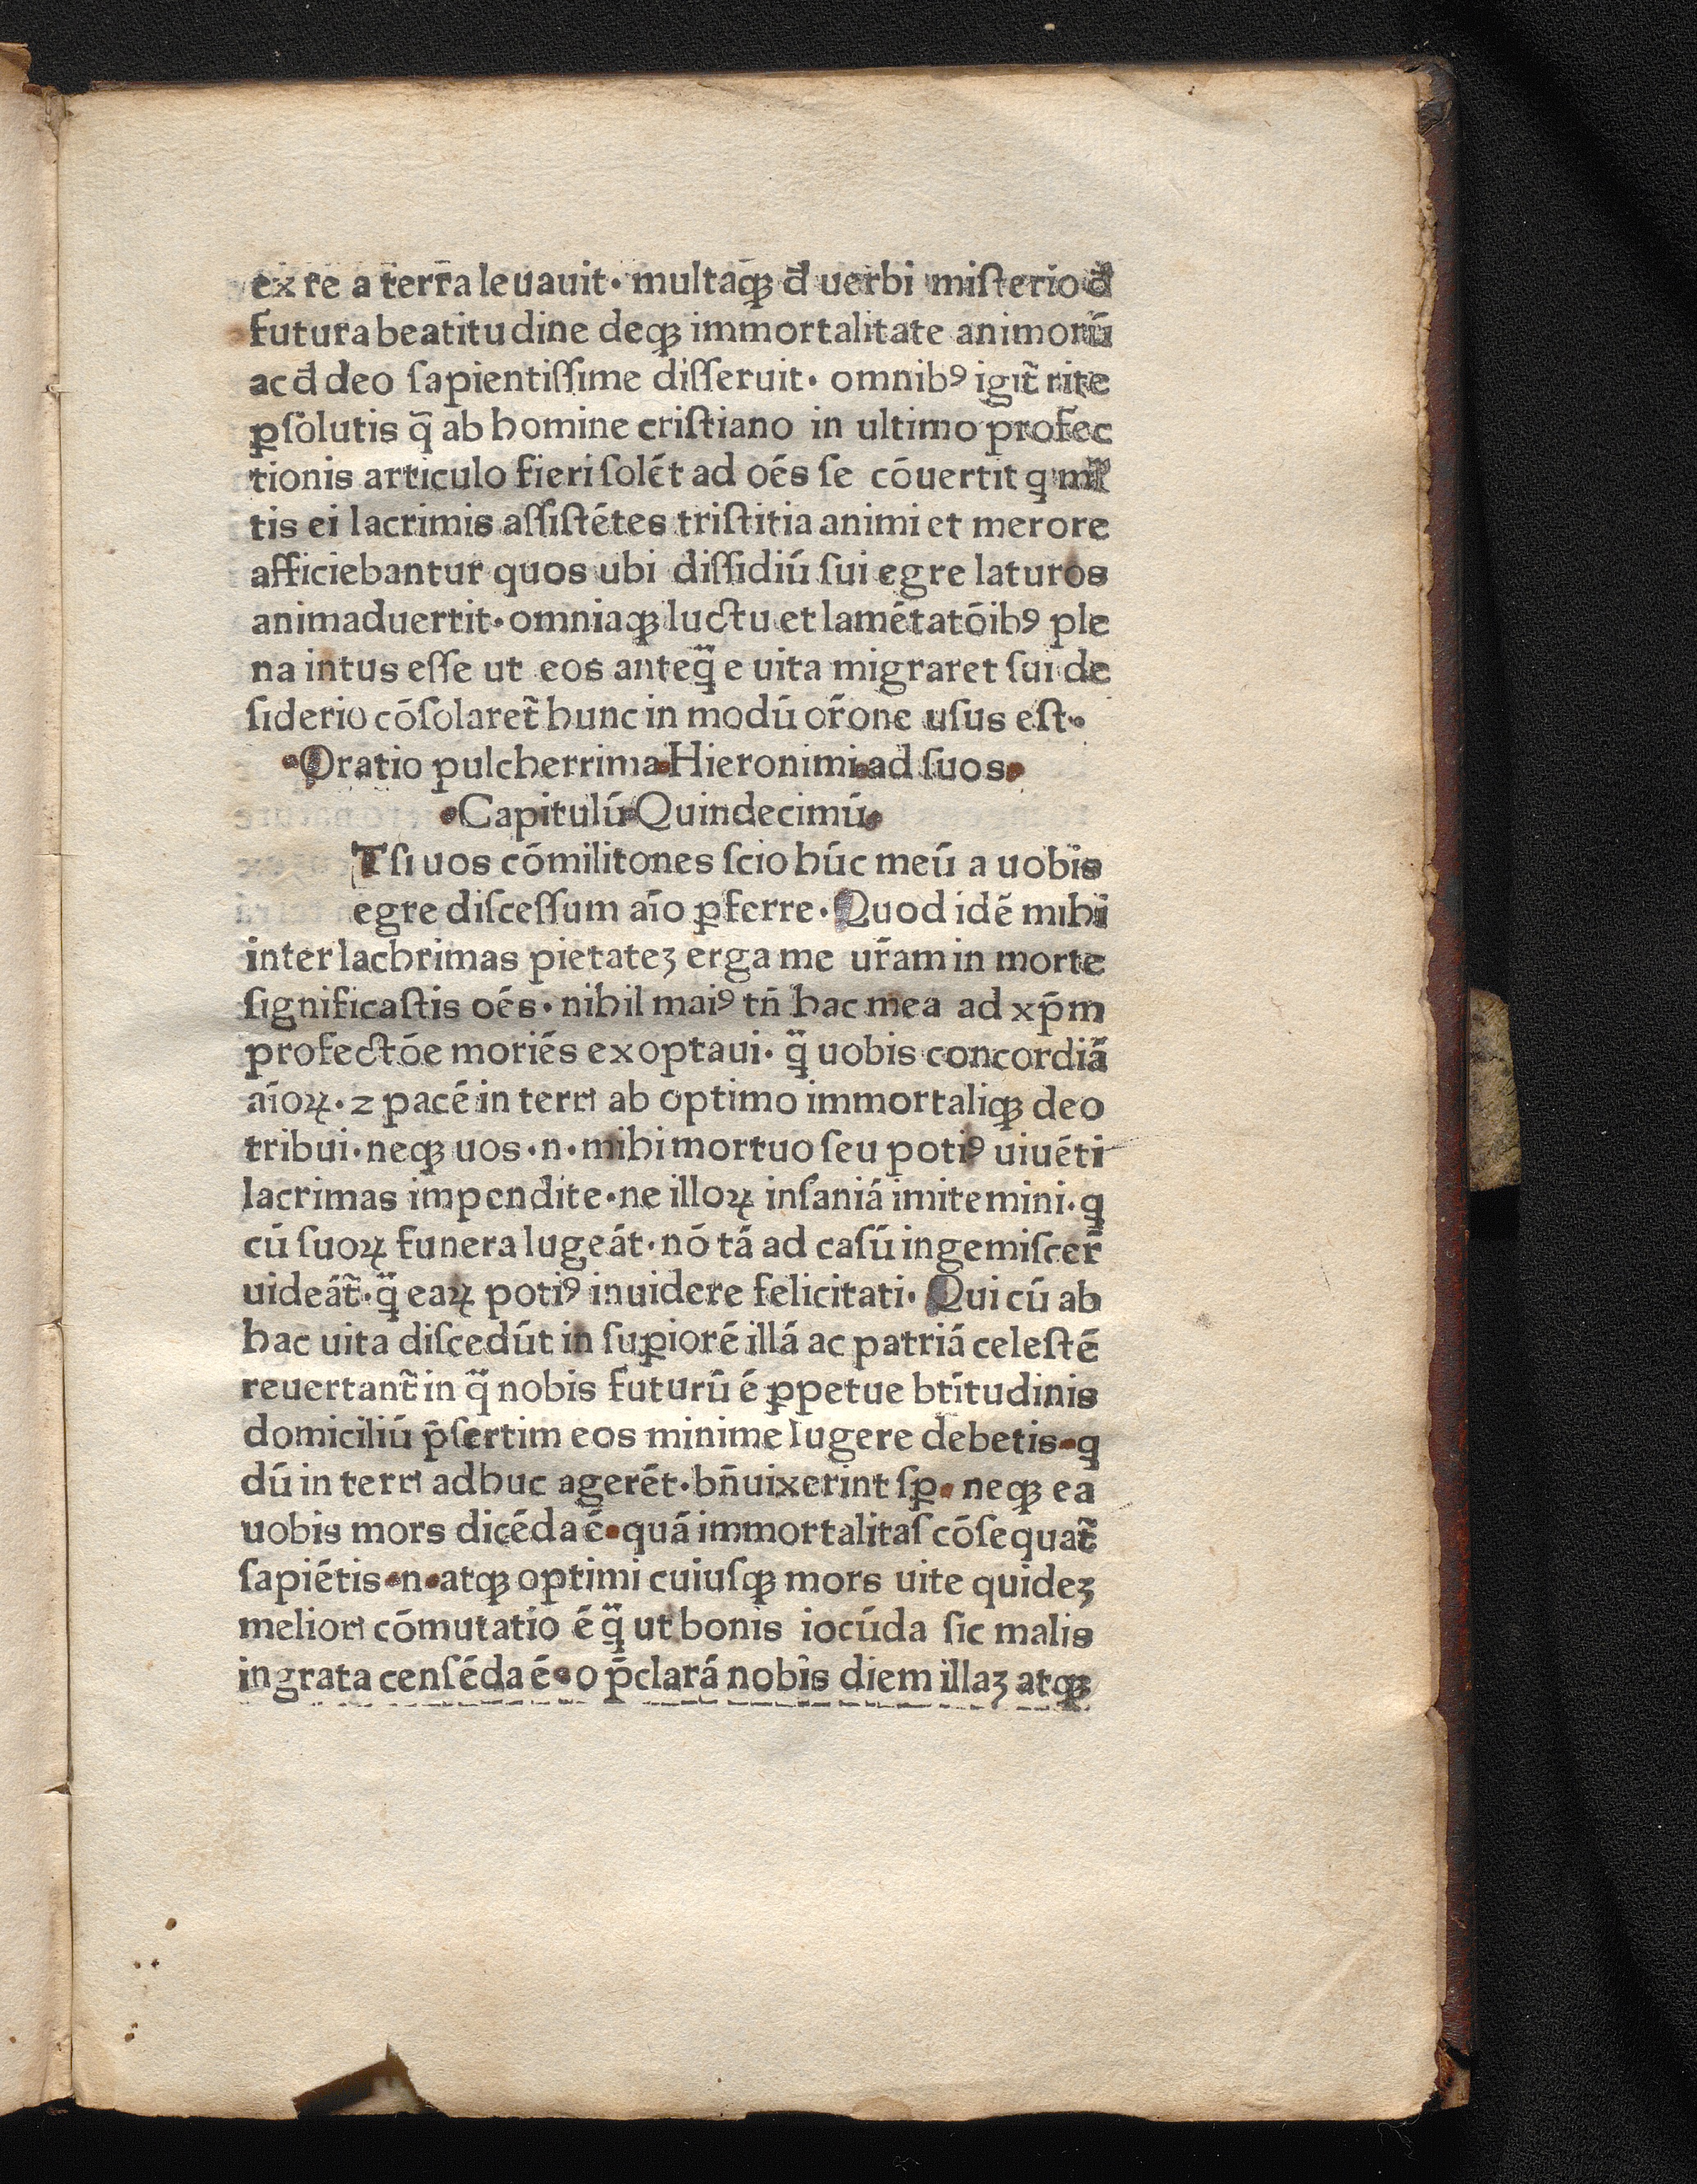 ex re a terra leuauit· multaqꝫ đ uerbi misterio đ
futura beatitudine deqꝫ immortalitate animorū
ac đ deo ſapientiſſime diſſeruit· omnibꝰ igit̄ rite
ꝑſolutis q̄ ab homine criſtiano in ultimo profec
tionis articulo fieri ſolēt ad oēs ſe cōuertit q
tis ei lacrimis aſſiſtētes triſtitia animi et merore
afficiebantur quos ubi diſſidiū ſui egre laturos
animaduertit·omniaqꝫ luctu et lamētatōibꝰ ple
na intus eſſe ut eos anteq̄ e uita migraret ſui de
ſiderio cōſolaret̄ hunc in modū or̄one uſus eſt·
·Oratio pulcherrima·Hieronimi·ad ſuos·
·Capitulū·Quindecimū·
Tſi uos cōmilitones ſcio hūc meū a uobis
egre diſceſſum aīo ꝑferre·Quod idē mihi
inter lachrimas pietateꝫ erga me ur̄am in morte
ſignificaſtis oēs·nihil maiꝰ tn̄ hac mea ad xp̄m
profectōe moriēs exoptaui· q̄ uobis concordiā
aīoꝝ·⁊ pacē in terrı ab optimo immortaliqꝫ deo
tribui·neqꝫ uos·n·mihi mortuo ſeu potiꝰ uiuēti
lacrimas impendite·ne illoꝝ inſaniā imitemini·q
cū ſuoꝝ funera lugeāt·nō tā ad caſū ingemiſcer̄
uideāt̄·q̄ eaꝝ potiꝰ inuidere felicitati·Qui cū ab
hac uita diſcedūt in ſuꝑiorē illā ac patriā celeſtē
reuertant̄ in q̄ nobis futurū ē ꝑpetue bt̄itudinis
domiciliū p̄ſertim eos minime lugere debetis·q
dū in terrı adhuc agerēt·bn̄ uixerint ſꝑ·neqꝫ ea
uobis mors dicēda ē·quā immortalitaſ cōſequat̄
ſapiētis·n·atqꝫ optimi cuiuſqꝫ mors uite quideꝫ
meliorı cōmutatio ē q̄ ut bonis iocūda ſic malis
ingrata cenſēda ē·o p̄clarā nobis diem illaꝫ atqꝫ